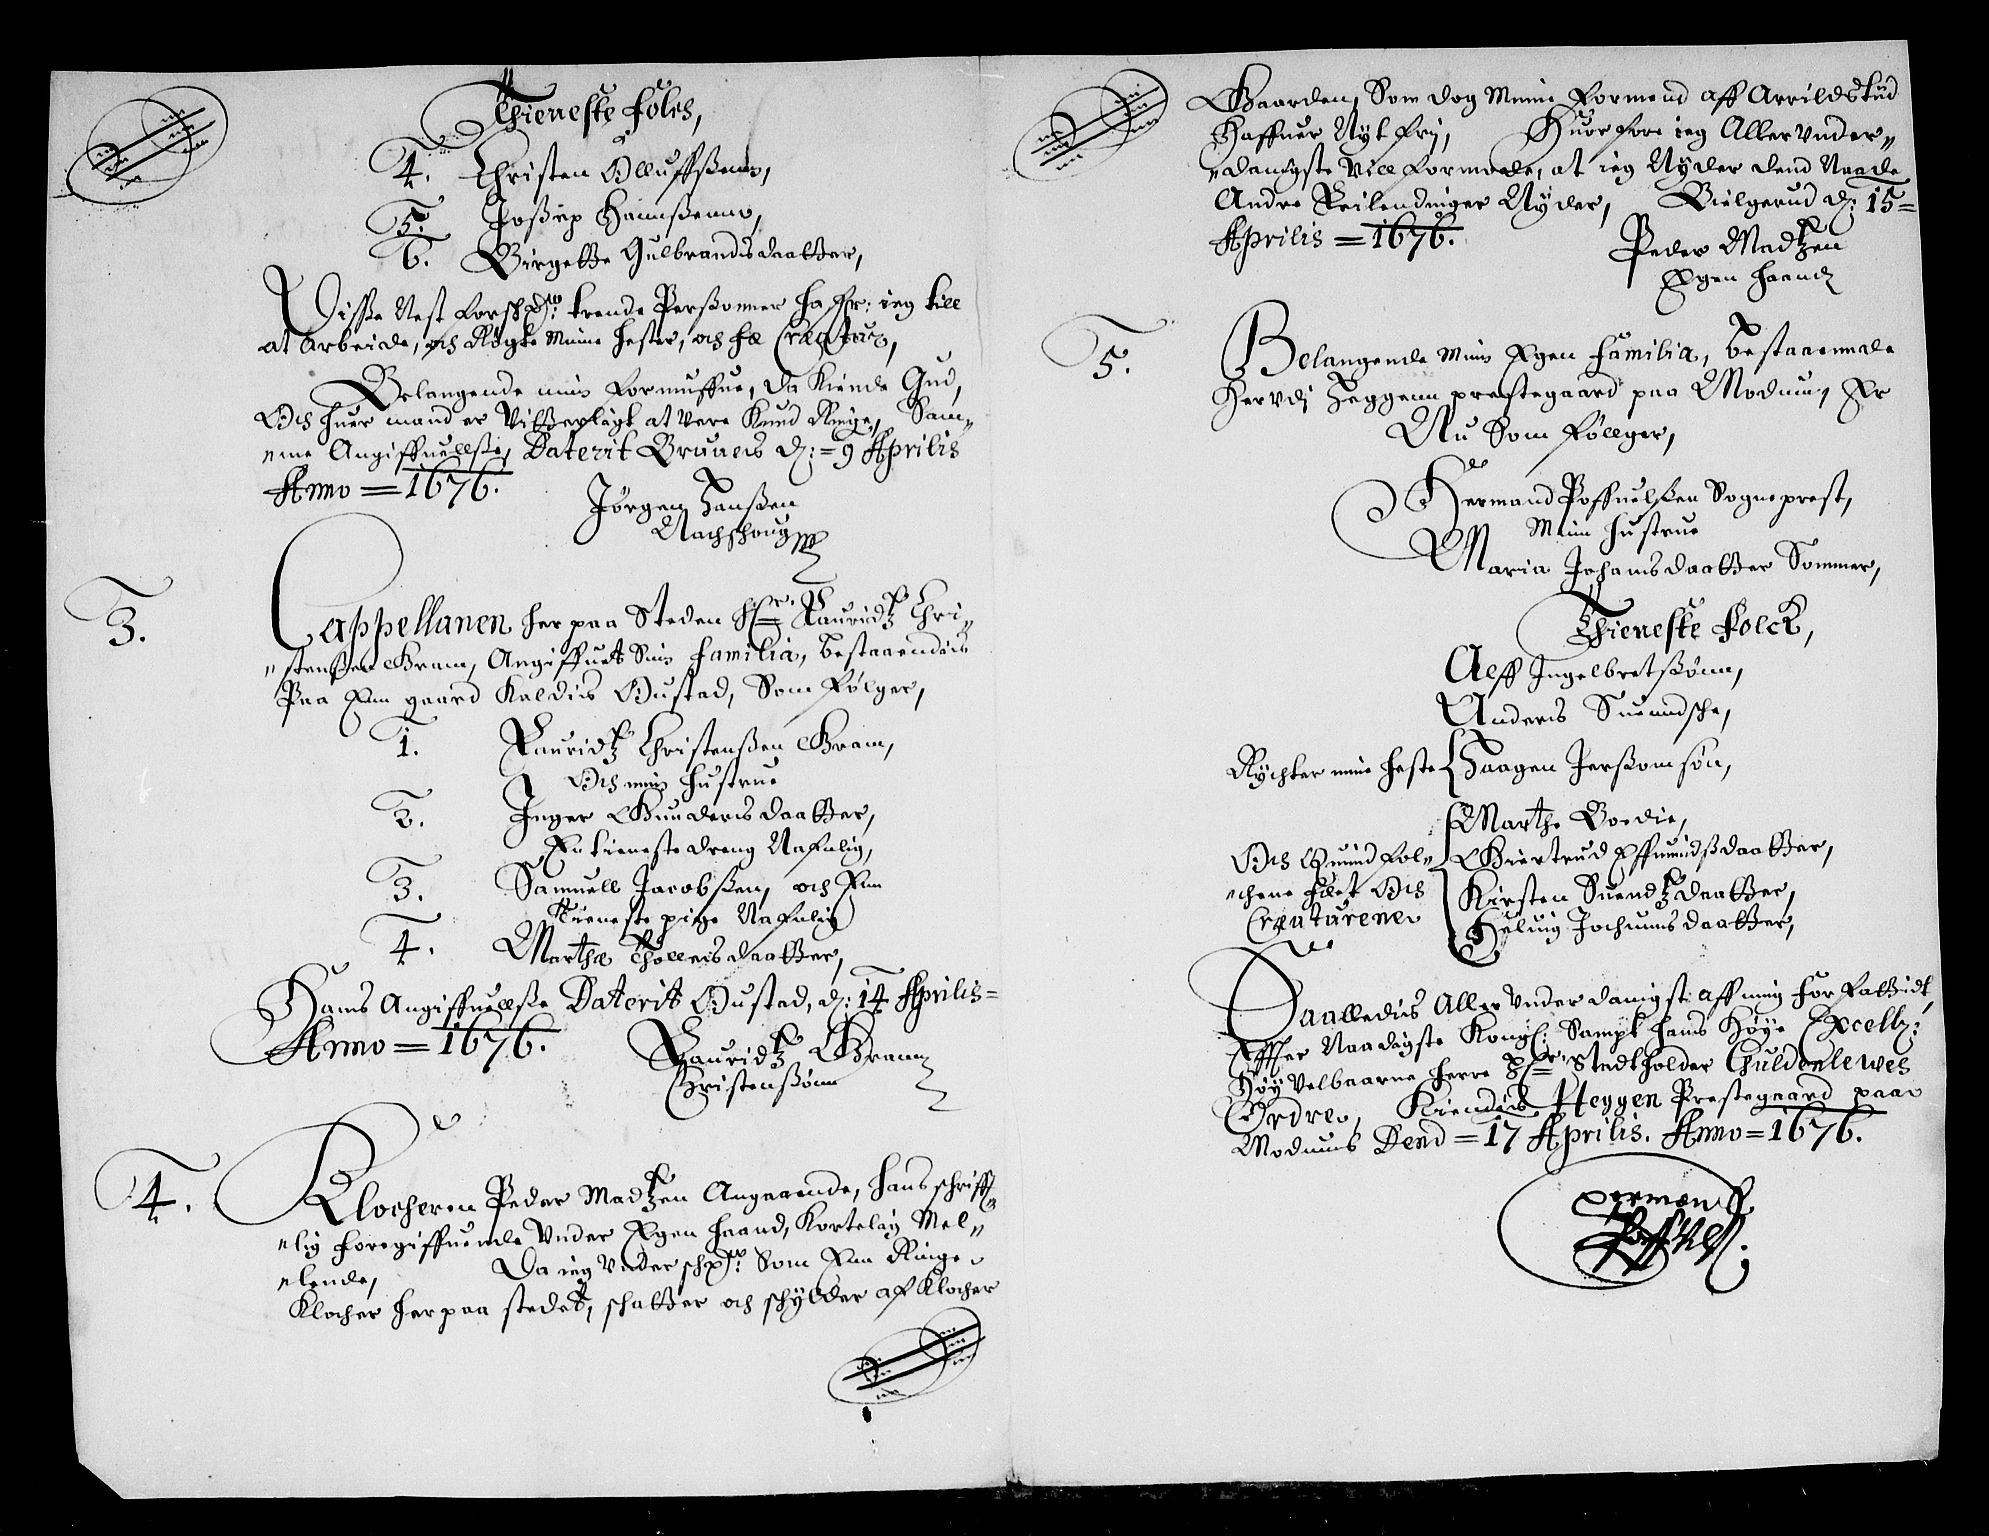 Thieneste folch,
4. Christen Olluffßenn,
5. Joßiep Hannßenn,
6. Birgette Gulbrandsdaatter,
Disße Nest forschr: trende Perßonner hafr: ieg till
at arbeide, och Røgte Minne hester, och fæ Creatur,
Belangende min formuffue, da kiende Gud,
Och huer mand er Vitterligt at vere Kund Ringe, Sam-
me Angiffuellße, Daterit Bruuers d: 9 Aprilis
Anno = 1676.
Jørgen Hanßen
Nachschoug
3. Cappellanen her paa Steden Hr: Lauridtz Chri-
stenßen Gram, Angiffuet Sin familia, bestaaendis
Paa Enn gaard Kaldis Bustad, Som følger,
1. Lauridtz Christenßen Gram,
Och min hustrue
2. Inger Gunders daatter,
En tieneste dreng Nafnlig,
3. Samuell Jacobßen, och Enn
Tieneste pige Nafnlig
4. Marthe Thollers daatter,
Hans Angiffuellße Daterit Bustad, d: 14 Aprilis
Anno = 1676.
Lauridtz Gram
Christenßønn
4. Klocheren Peder Madtzen Angaaende, hans schrifft-
lig foregiffuende Vnder Egen haand, Kortelig Mel-
lende, Da ieg Vnderschr: Som Enn Ringe
Klocher her paa stedet, schatter och schylder af Klocher
Gaarden, Som dog Minne formend aff Arrildstud
Haffuer Nyt frj, Huorfore ieg Allervnder-
danigste Vill formode, at ieg Nyder dend Naade
Andre Reilendinger Nyder, Bielgerud d: 15
Aprilis = 1676.
Peder Madtzen
Egen haand
5. Belangende Min Egen familia, bestaaennde
Her vdj Heggenn prestegaard paa Modum, Er
Nu Som følger,
Hermand Poffuelßen Sogneprest,
Minn hustrue
Maria Johans daatter Sommer,
Thieneste folck,
Alff Ingelbretßønn,
Anders Suendsche,
Rychter mine heste { Haagen Jerßomsøn,
Marthe Bordie,
Och Quindfol- Giertrud Effuindßdaatter,
chene fæet Och Kirsten Suendtzdaatter,
Creaturene Heluig Jochums daatter,
Saalledis Aller Vnderdanigst aff mig forfattidt,
Effter Naadigste Kongl: Sampt hans Høye Excell:
Høy Velbaarne herre Hr: Stadtholder Guldenlewes
Ordre, Kiendis Heggen Prestegaard paa
Modums Dend = 17 Aprilis. Anno = 1676.
Hermand
Poffuelß: